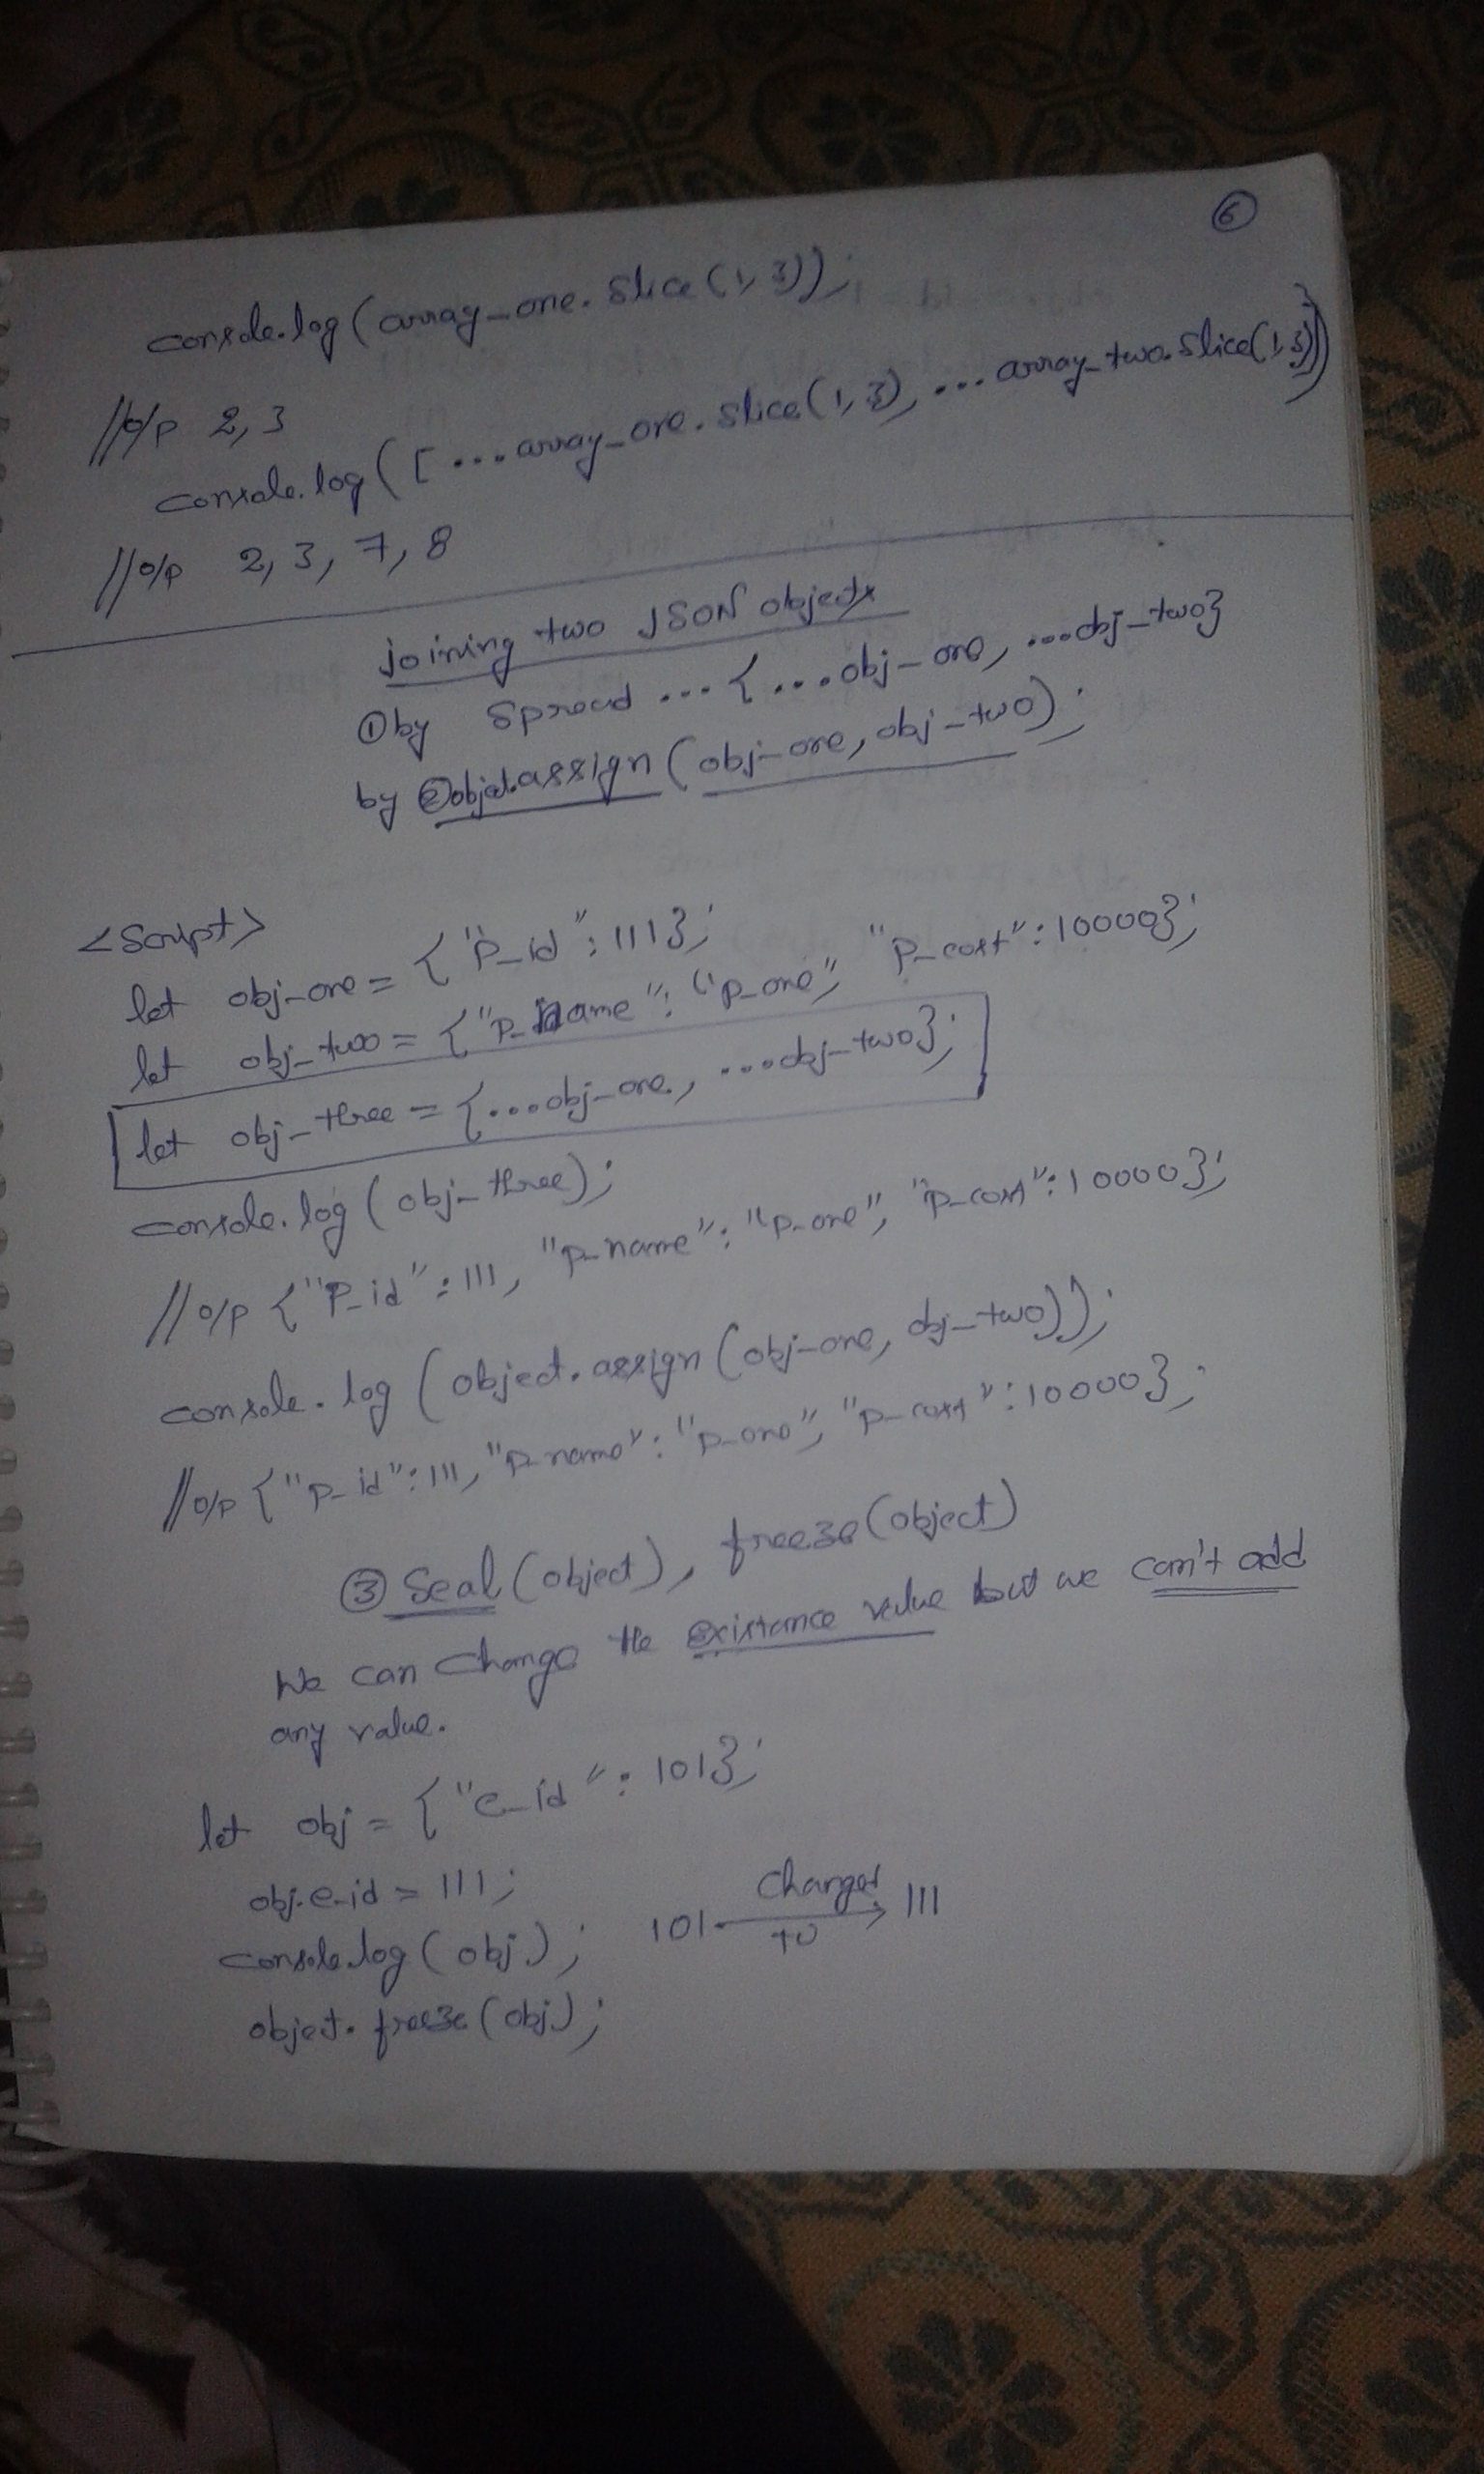 6
console.log(array_one.slice(1,3));
//o/p 2,3
console.log([...array_one.slice(1,3), ...array_two.slice(1,3)])
//o/p 2, 3, 7, 8
joining two JSON objects
① by spread ... {...obj_one, ...obj_two}
by ② object.assign (obj_one, obj_two);
<script>
let obj_one = {"P_id": 111};
let obj_two = {"P_name": "p_one", "p_cost": 10000};
let obj_three = {...obj_one, ...obj_two};
console.log(obj_three);
//o/p {"P_id": 111, "p_name": "p_one", "p_cost": 10000};
console.log(object.assign(obj_one, obj_two));
//o/p {"p_id": 111, "p_name": "p_one", "p_cost": 10000};
③ Seal(object), freeze(object)
We can change the existance value but we can't add
any value.
let obj = {"e_id": 101};
obj.e_id = 111;
console.log(obj); 101 changes to 111
object.freeze(obj);